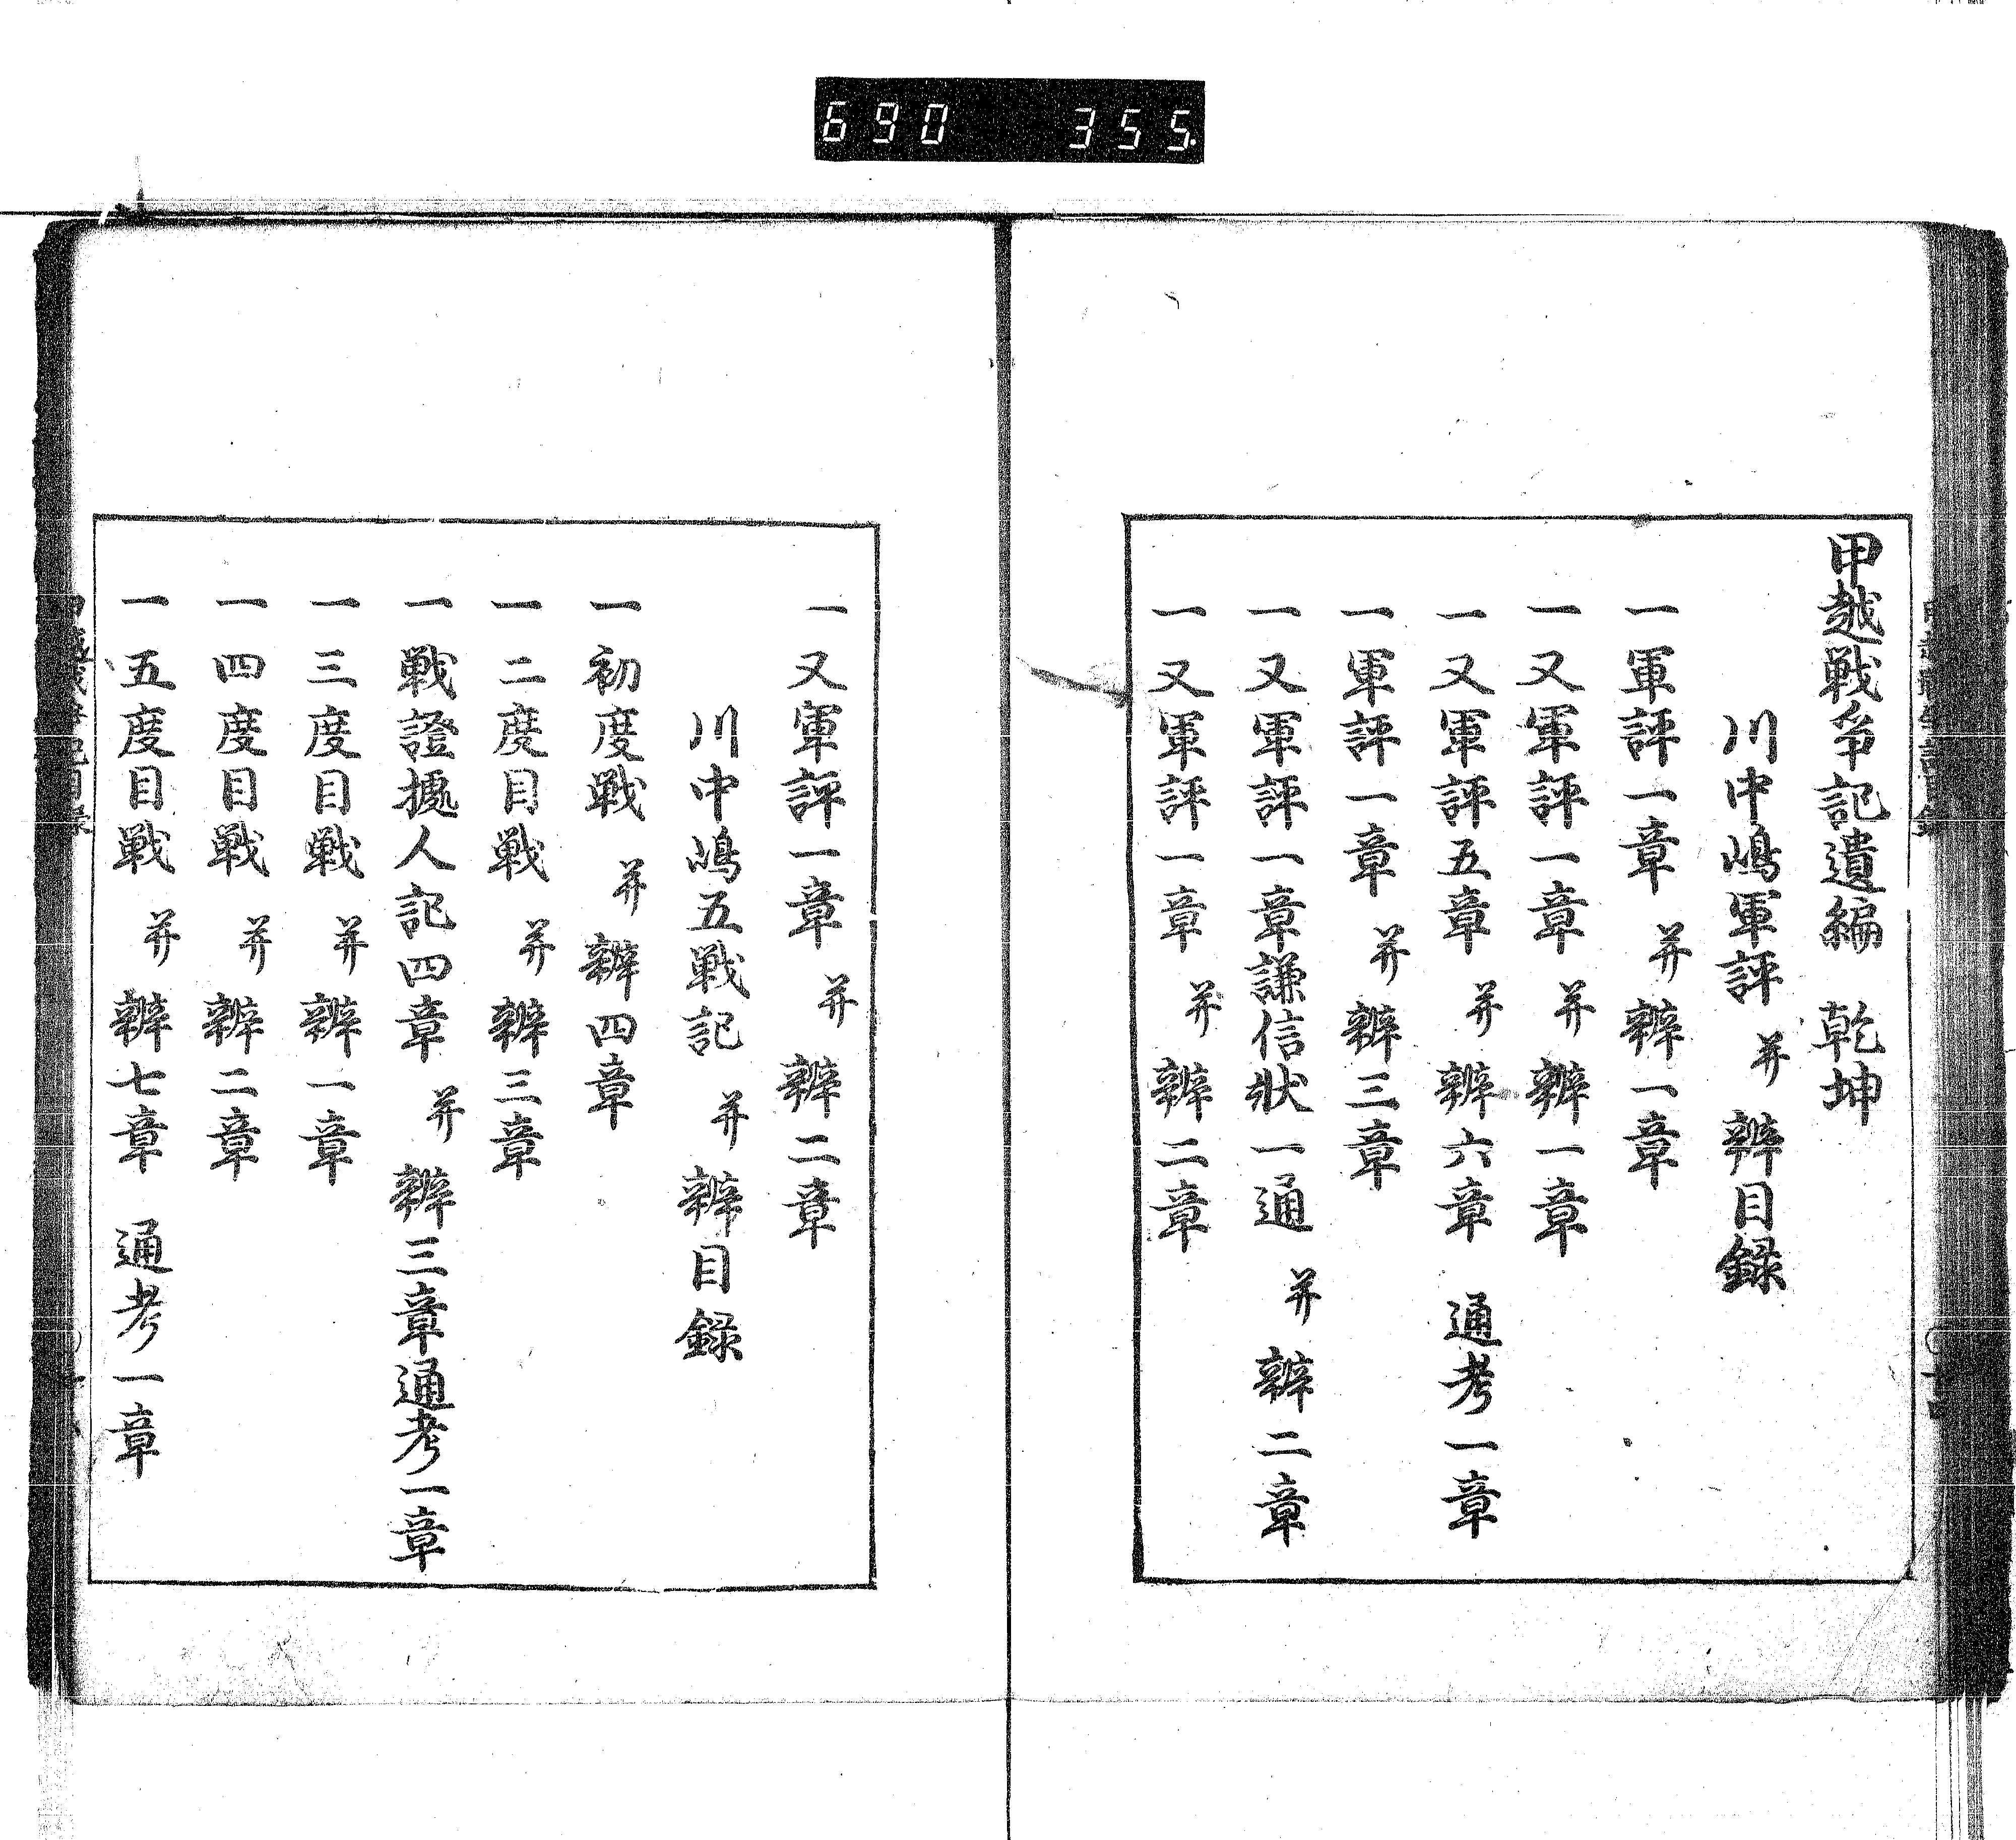 690 355
甲越戦爭記遺編 乾坤
川中嶋軍評 并 辨目録
一 軍評一章 并 辨一章
一 又軍評一章 并 辨一章
一 又軍評五章 并 辨六章 通考一章
一 軍評一章 并 辨三章
一 又軍評一章謙信狀一通 并 辨二章
一 又軍評一章 并 辨二章
一 又軍評一章 并 辨二章
川中嶋五戦記 并 辨目録
一 初度戦 并 辨四章
一 二度目戦 并 辨三章
一 戦證㨿人記四章 并 辨三章通考一章
一 三度目戦 并 辨一章
一 四度目戦 并 辨二章
一 五度目戦 并 辨七章 通考一章